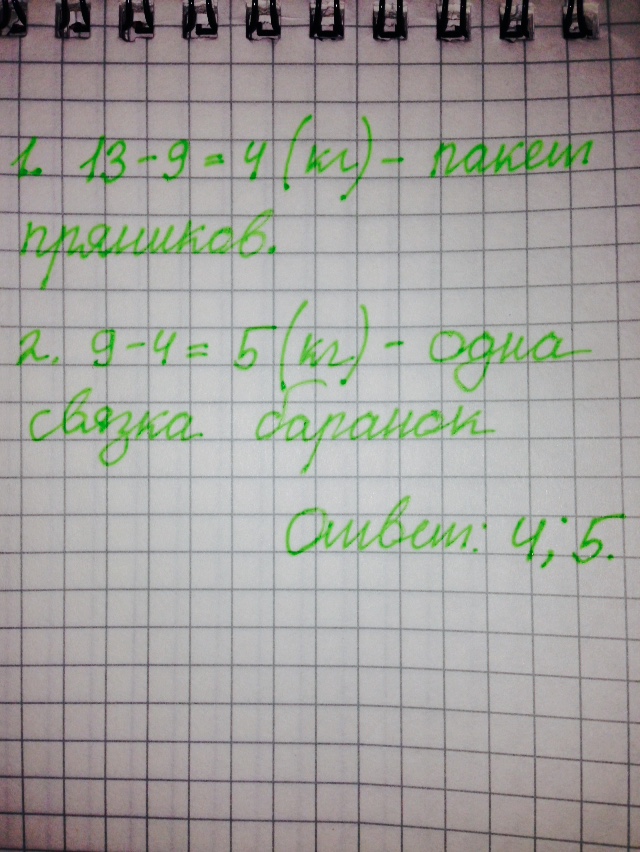 1. 13-9=4 (кг) - пакет
пряников.
2. 9-4= 5 (кг) - одна
связка баранок
Ответ: 4; 5.